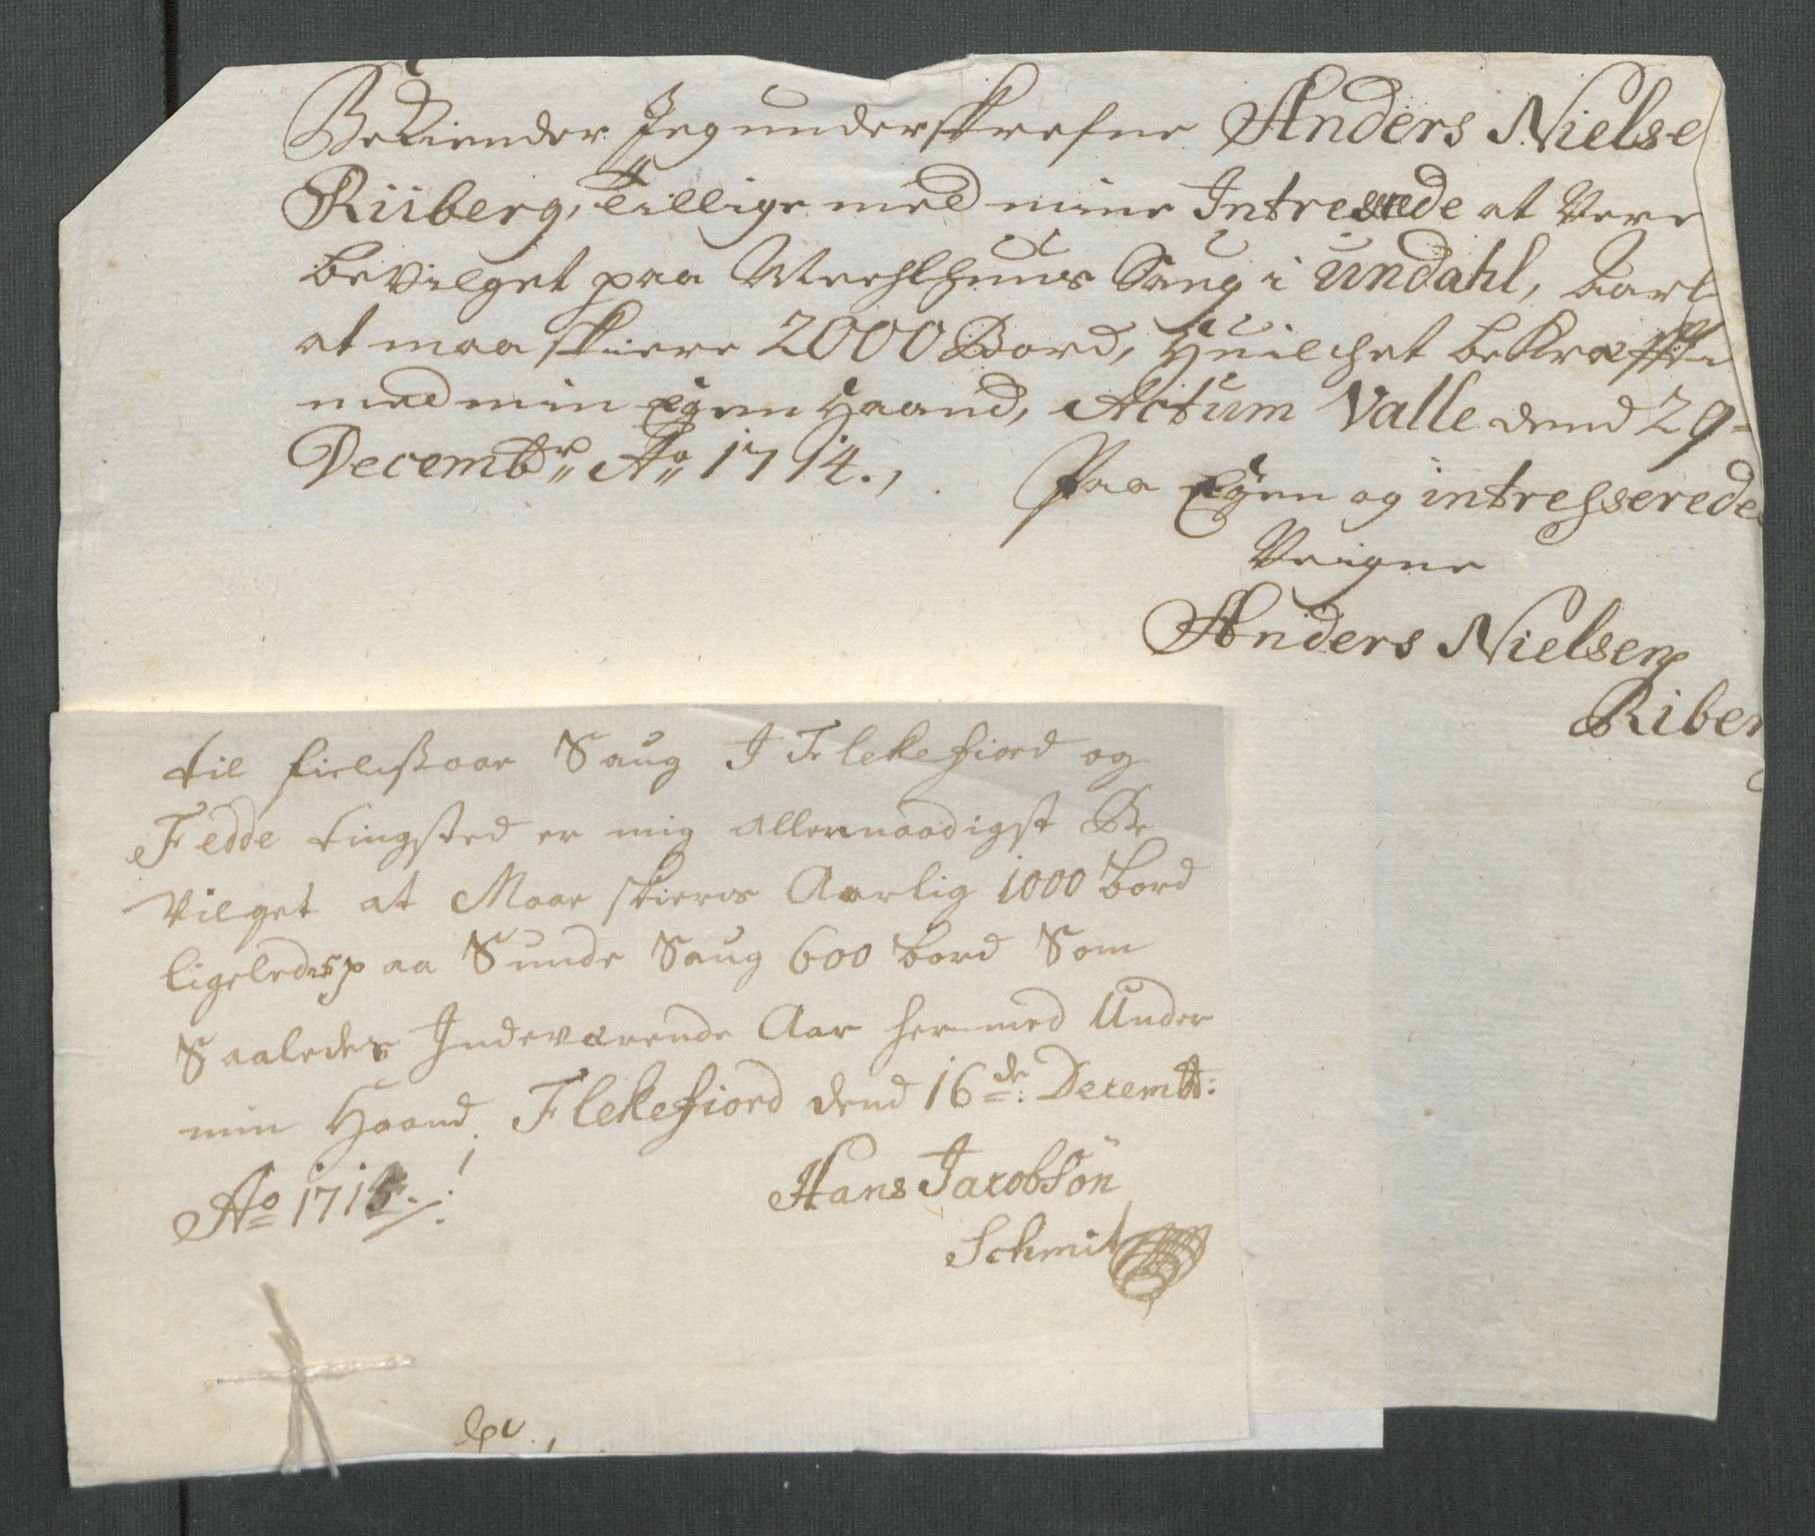 Bekiender Jeg underskrefne Anders Nielse
Riiberg, Tillige med mine Intressede at Vere
bevilget paa Meehlhuus Saug i Undahl, Aarl
at maa skiere 2000 Bord, Huilchet bekræffte
med min Egen Haand, Actum Valle dend 29
Decembr Ao 1714.,
Paa Egen og intresserede
Veigne
Anders Nielsen
Riber
til fielskaar Saug I Flekefiord og
Fedde tingsted er mig allernaadigst Be
vilget at Maae skiere Aarlig 1000 bord
ligeledes paa Sunde Saug 600 bord Som
Saaledes Indeværende Aar hermed Under
min Haand, Flekefiord dend 16de: Decemb:
Ao 1715
Hans Jacobsön
Schmit